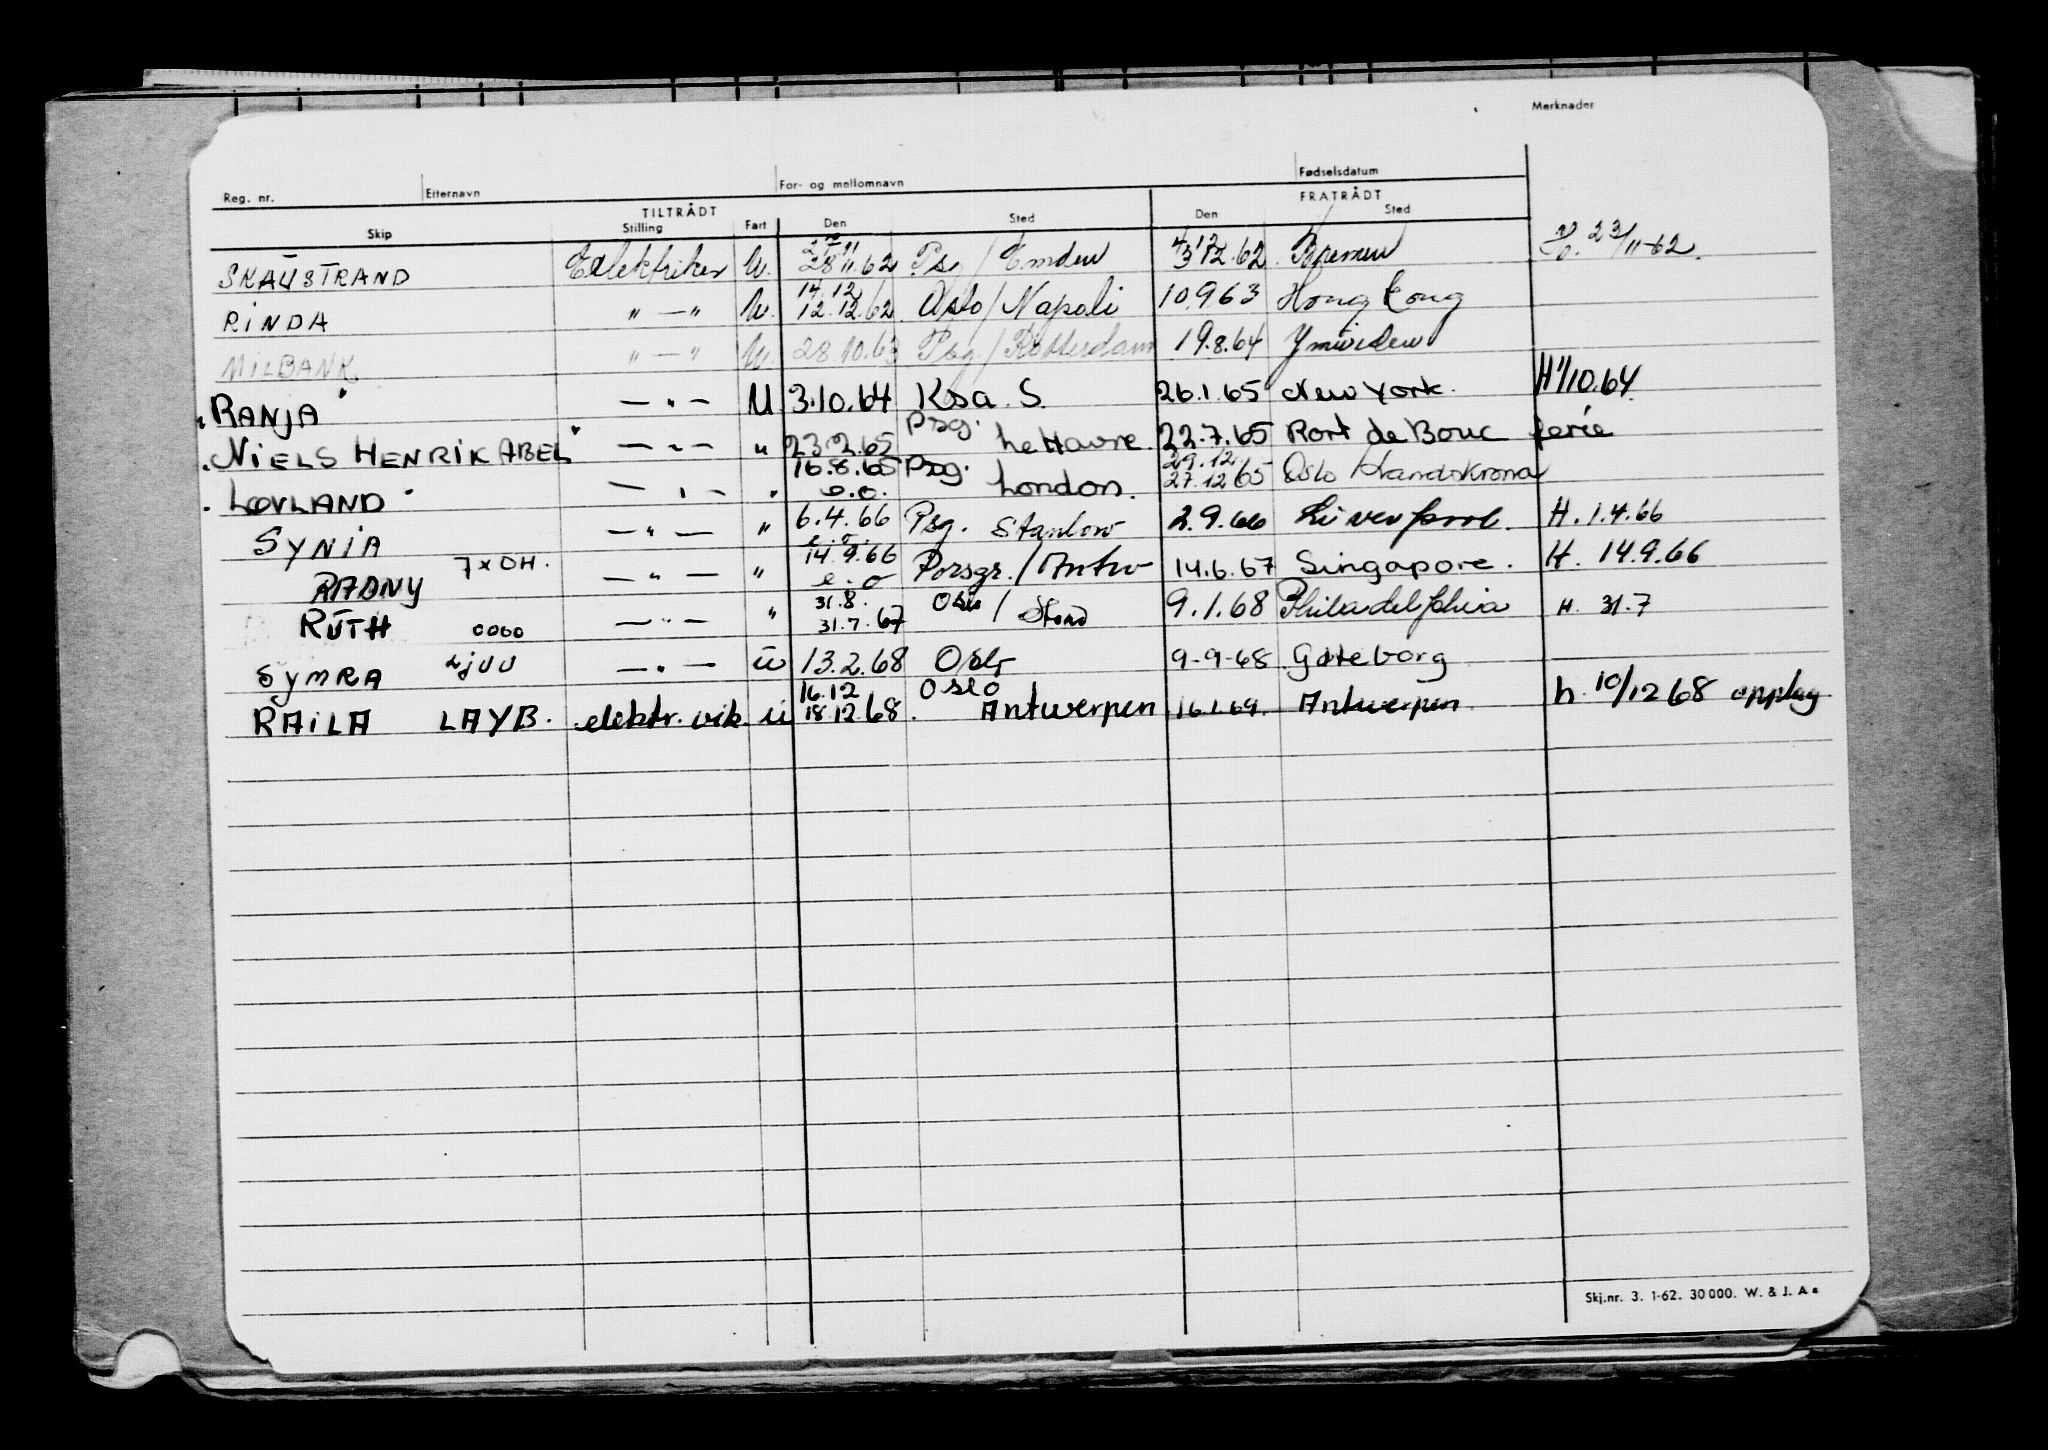 Merknader
Reg. nr. Etternavn For- og mellomnavn Fødselsdatum
TILTRÅDT FRATRÅDT
Skip Stilling Fart Den Sted Den Sted
SKAUSTRAND Elektriker U. 28 11.62 Ps / Emden 12.62 Bremen 23/11-62.
RINDA " — " U. 14 12 12.12.62 Oslo / Napoli 10.9 63 Hong Kong
MILBANK " — " U. 28.10.63 Psg / Rotterdam 19.8.64 Ymuiden
"RANJA" — " — U 3.10.64 Ksa. S. 26.1.65 New York. H 1/10.64.
"NIELS HENRIK ABEL" — " — " 23.2.65 Psg. Le Havre 22.7.65 Port de Bouc ferie
"LØVLAND" — " — " 16.8.65 e.o. Psg. London. 29.12 27.12 65 Oslo / Landskrona
SYNIA — " — " 6.4.66 e.o. Psg. Stanlow 2.9.66 Liverpool. H. 1.4.66
RADNY 7xOH. — " — " 14.9.66 e.o Porsgr. / Antw 14.6.67 Singapore. H. 14.9.66
RUTH oooo — " — " 31.8. 31.7.67 Oslo / Stord 9.1.68 Philadelphia H. 31.7
SYMRA — " — u 13.2.68 Oslo 9-9-68 Gøteborg
RAILA LAYB. elektr. vik. u 16.12 18.12.68. Oslo Antwerpen 16.1.69. Antwerpen h. 10/12 68 opplag
Skj.nr. 3. 1-62. 30 000. W. & J. A s